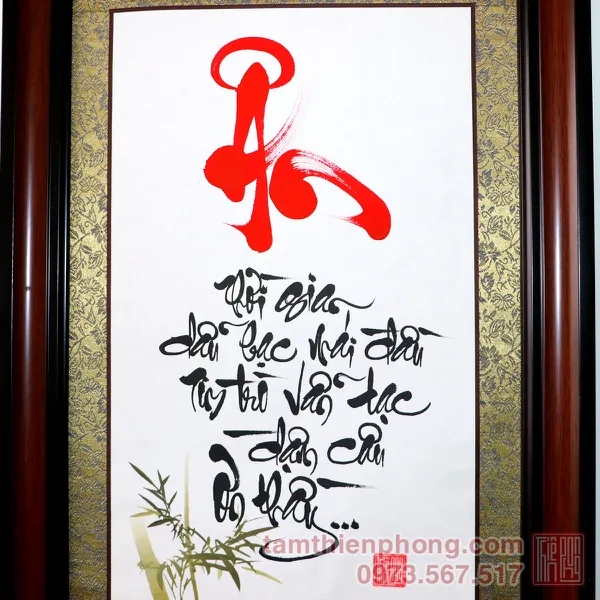 Ân
Thời gian
dẫu bạc mái đầu
Tim trò vẫn tạc
đậm câu
ơn thầy...
tamthienphong.com
0973.567.517